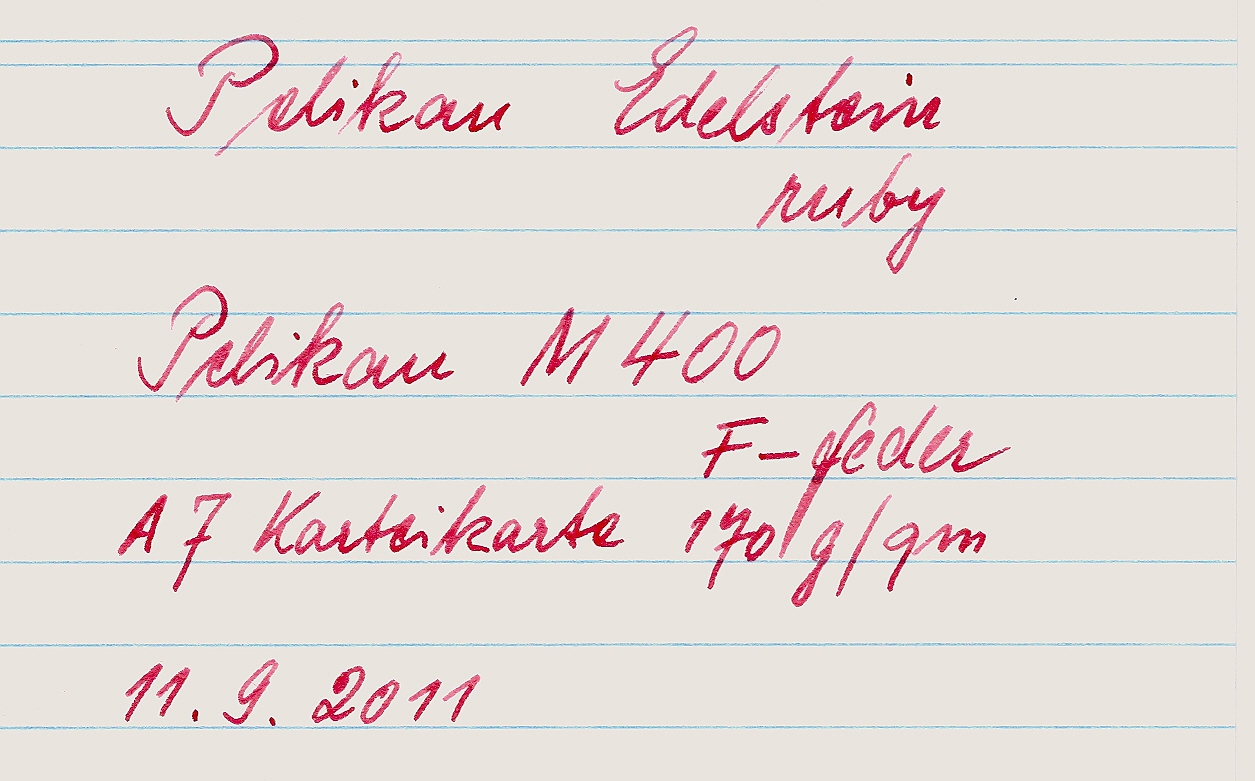 Pelikan Edelstein
ruby
Pelikan M 400
F-feder
A7 Karteikarte 170 g/qm
11. 9. 2011